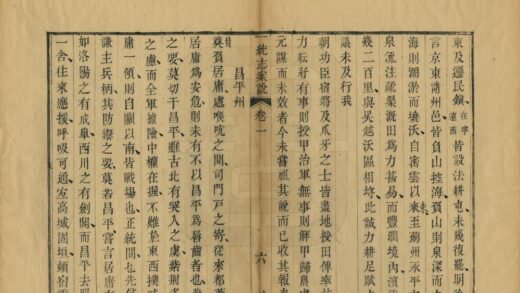 東及遷民鎮在寧遠西皆設法耕屯未幾復罷明
言京東諸州邑皆負山控海負山則泉深而
海則潮淤而壤沃自密雲以東至薊州永平
泉流注疏渠溉田爲力甚易而豐潤境內濱
幾二百里與吳越沃區相埒此誠力耕足賦
議未及行我
朝功臣宿將及爪牙之士皆畫地授田俾率
力耘耔有事則授甲治軍無事則解甲歸農
元謀而未效者今未嘗祖其說而已收其報
一統志案說 卷一 六
昌平州
居庸處喉吭之間司門戶之寄從來都
居庸爲安危則未有不以昌平爲脣齒者也
之要莫切于昌平雖古北有入之虞紫荊
之慮而全軍雄險中權在握不難於東西撲
庸一傾則自關以南皆戰場也正統間乜先
謙主兵柄其防禦之要莫若昌平嘗言居庸
如洛陽之有成皋西川之有劍閣而昌平去
一舍往來應援呼吸可通高城固垣頻宿